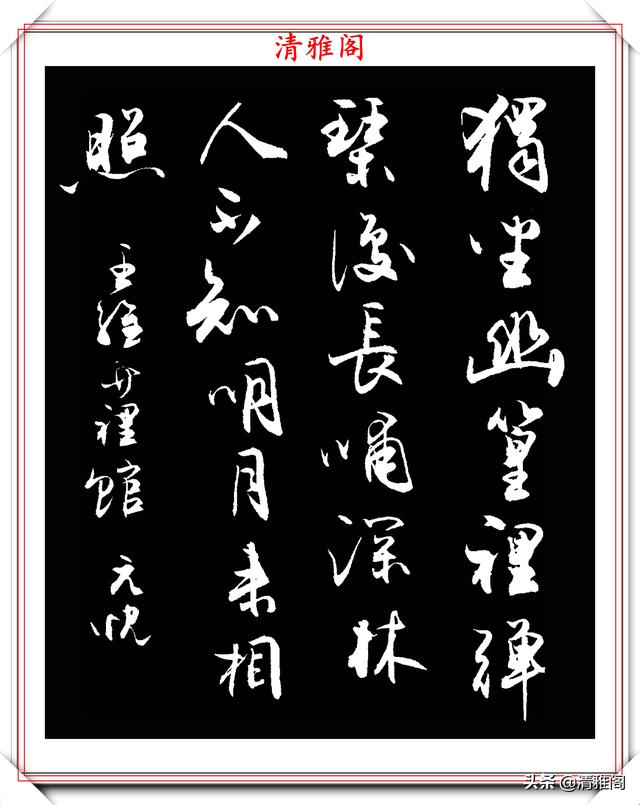 清雅阁
獨坐幽篁裡彈
琹復長嘯深林
人不知明月来相
照
王維竹裡館
元
头条 @清雅阁